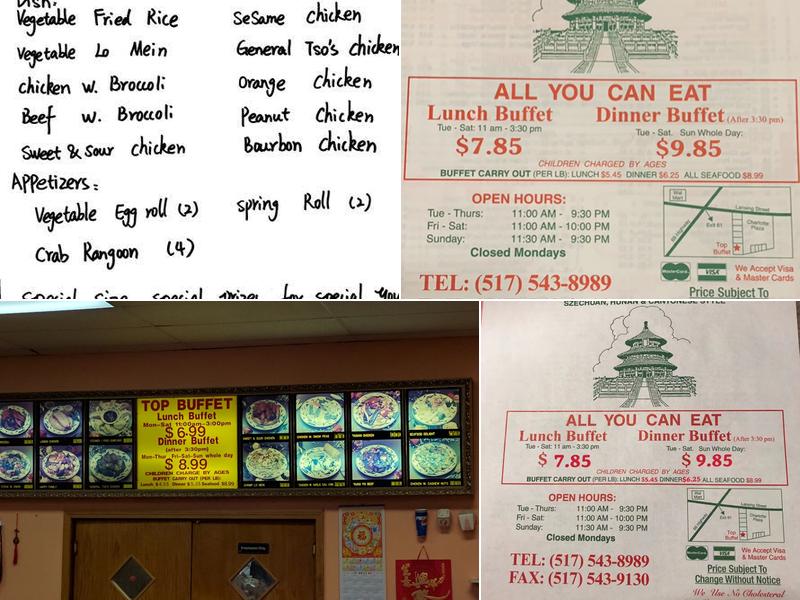 Dish:
Vegetable Fried Rice
SeSame chicken
Vegetable Lo Mein
General Tso's chicken
chicken w. Broccoli
Orange chicken
Beef w. Broccoli
Peanut Chicken
Sweet & Sour chicken
Bourbon Chicken
Appetizers:
Vegetable Egg roll (2)
spring Roll (2)
Crab Rangoon (4)
ALL YOU CAN EAT
Lunch Buffet
Tue - Sat: 11 am - 3:30 pm
$7.85
Dinner Buffet (After 3:30 pm)
Tue - Sat. Sun Whole Day:
$9.85
CHILDREN CHARGED BY AGES
BUFFET CARRY OUT (PER LB): LUNCH $5.45 DINNER $6.25 ALL SEAFOOD $8.99
OPEN HOURS:
Tue - Thurs: 11:00 AM - 9:30 PM
Fri - Sat: 11:00 AM - 10:00 PM
Sunday: 11:30 AM - 9:30 PM
Closed Mondays
Wal Mart
Lansing Street
Exit 61
Charlotte Plaza
69 Highway
Top Buffet
MasterCard
VISA
We Accept Visa
& Master Cards
TEL: (517) 543-8989
Price Subject To
TOP BUFFET
Lunch Buffet
Mon-Sat 11:00am-3:00pm
$6.99
Dinner Buffet
(after 3:30pm)
Mon-Thu Fri-Sat-Sun whole day
$8.99
CHILDREN CHARGE BY AGES
BUFFET CARRY OUT (PER LB):
Lunch $4.55 Dinner $5.35 Seafood $8.99
Employees Only
SZECHUAN, HUNAN & CANTONESE STYLE
ALL YOU CAN EAT
Lunch Buffet
Tue - Sat: 11 am - 3:30 pm
$ 7.85
Dinner Buffet (After 3:30 pm)
Tue - Sat. Sun Whole Day:
$ 9.85
CHILDREN CHARGED BY AGES
BUFFET CARRY OUT (PER LB): LUNCH $5.45 DINNER $6.25 ALL SEAFOOD $8.99
OPEN HOURS:
Tue - Thurs: 11:00 AM - 9:30 PM
Fri - Sat: 11:00 AM - 10:00 PM
Sunday: 11:30 AM - 9:30 PM
Closed Mondays
Wal Mart
Lansing Street
Exit 61
Charlotte Plaza
69 Highway
Top Buffet
MasterCard
VISA
We Accept Visa
& Master Cards
TEL: (517) 543-8989
FAX: (517) 543-9130
Price Subject To
Change Without Notice
We Use No Cholesteral